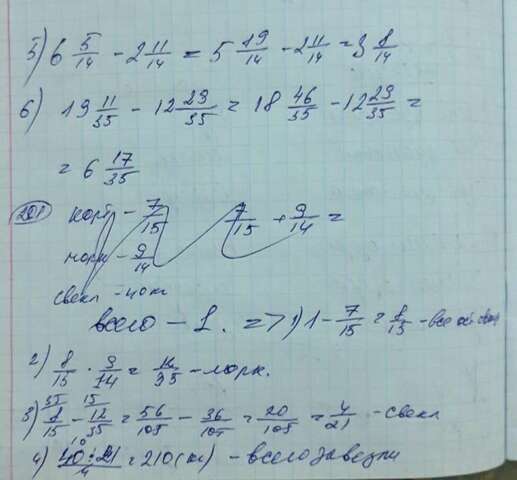 5) 6 5/14 - 2 11/14 = 5 19/14 - 2 11/14 = 3 8/14
6) 19 11/35 - 12 29/35 = 18 46/35 - 12 29/35 =
= 6 17/35
201 карт - 7/15 7/15 + 9/14 =
морк - 9/14
свекл - 40 кг
всего - 1. => 1) 1 - 7/15 = 8/15 - все
2) 8/15 · 9/14 = 12/35 - морк.
3) 8/15 - 12/35 = 56/105 - 36/105 = 20/105 = 4/21 - свекл
4) 40 · 21/4 = 210 (кг) - всего завезли